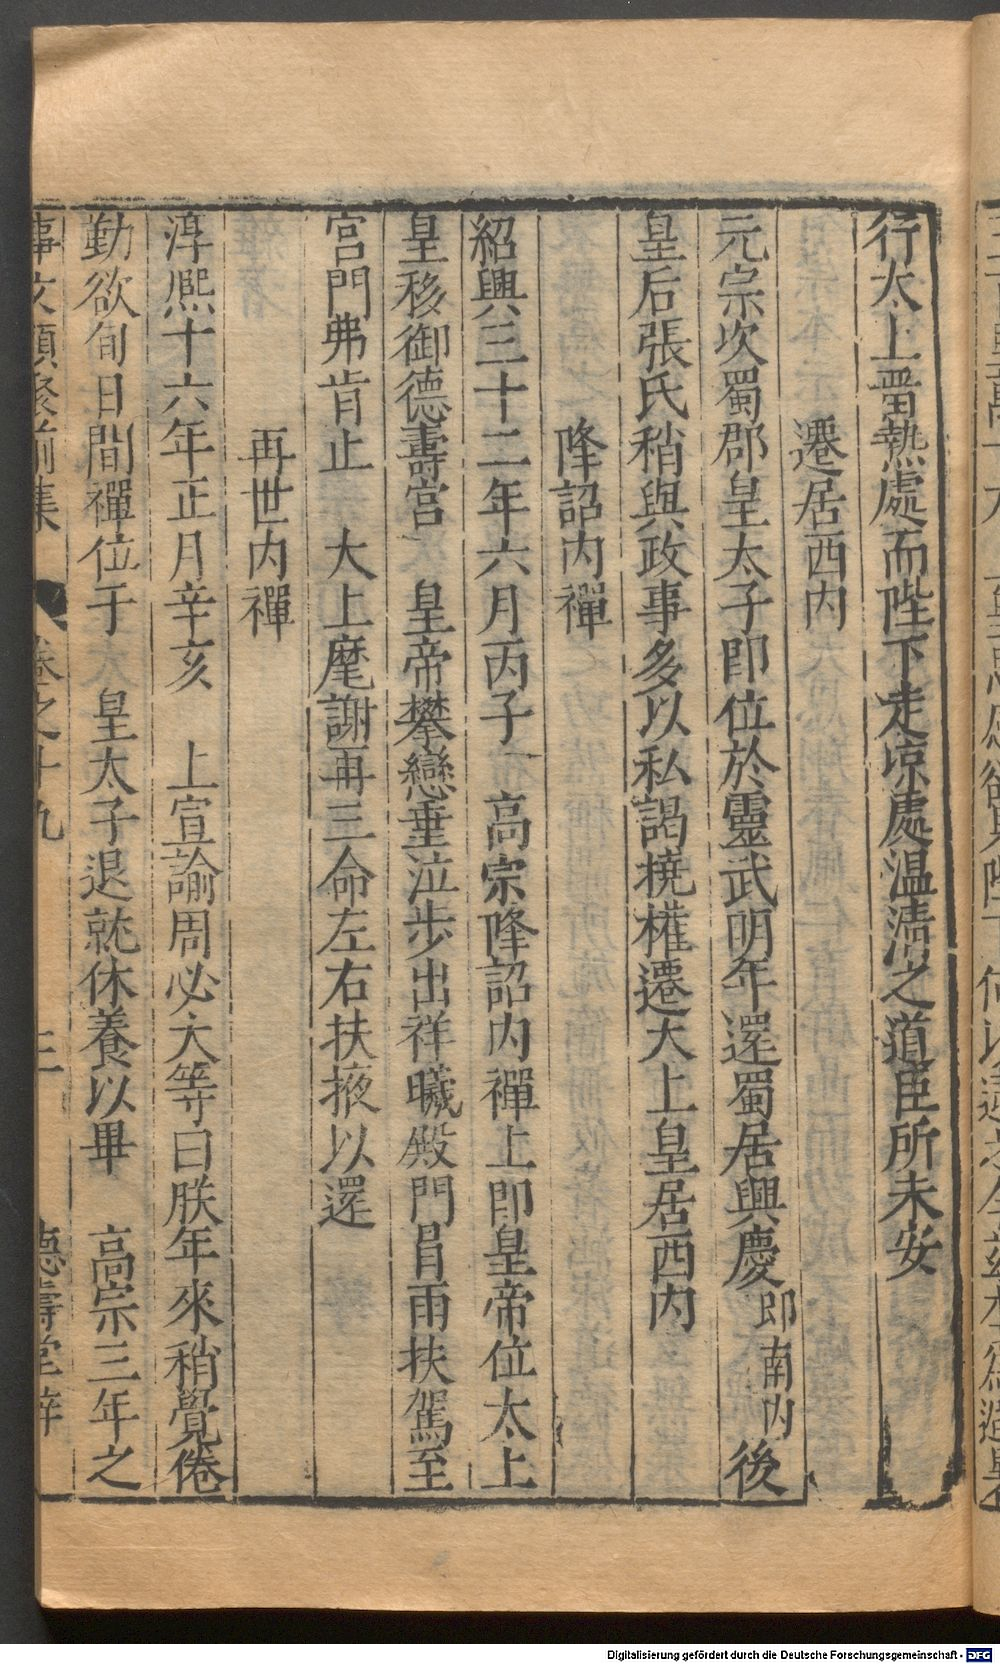 行太上畱熱處而陛下走凉處温凊之道臣所未安
遷居西内
元宗次蜀郡皇太子即位於靈武明年還蜀居興慶即南内後
皇后張氏稍與政事多以私謁撓權遷大上皇居西内
降詔内禪
紹興三十二年六月丙子 高宗降詔内禪上即皇帝位太上
皇移御德壽宫 皇帝攀戀垂泣步出祥曦殿門冐雨扶駕至
宫門弗肯止 大上麾謝再三命左右扶掖以還
再世内禪
淳熈十六年正月辛亥 上宣諭周必大等曰朕年來稍覺倦
勤欲旬日間禪位于 皇太子退就休養以畢 高宗三年之
事文類聚前集 卷之十九 三 德壽堂梓
Digitalisierung gefördert durch die Deutsche Forschungsgemeinschaft - DFG